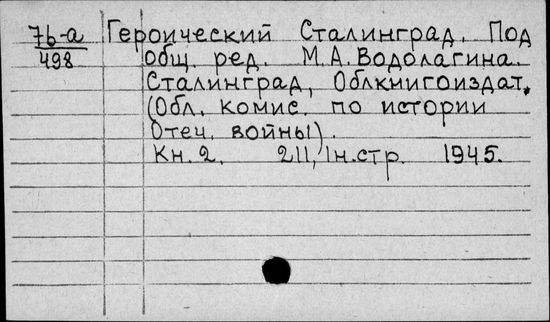 7б-а Героический Сталинград. Под
498 общ. ред. М.А. Водолагина.
Сталинград, Облкнигоиздат,
(Обл. комис. по истории
Отеч. войны).
Кн. 2. 211, 1н.стр. 1945.